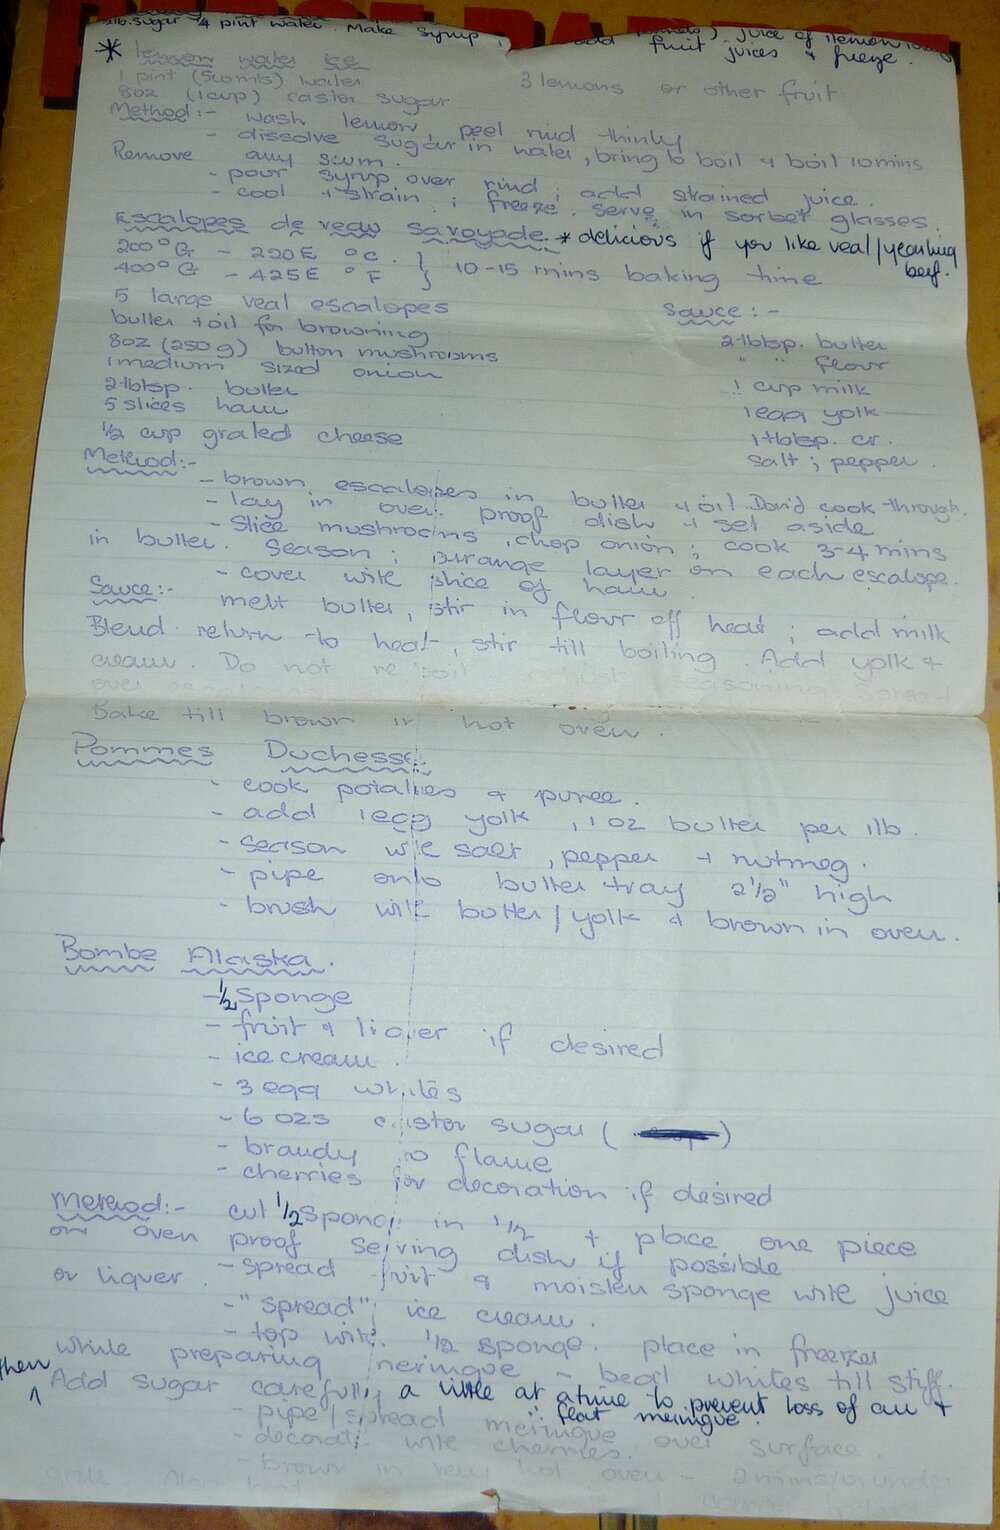 lb. sugar 4 pint water. Make syrup, add juice of 1 lemon
fruit juices & freeze.
* lemon water ice
1 pint (500mls) water 3 lemons or other fruit
8oz (1cup) castor sugar
Method:- wash lemon, peel rind thinly
- dissolve sugar in water, bring to boil & boil 10mins
Remove any scum.
- pour syrup over rind; add strained juice.
- cool & strain; freeze. Serve in sorbet glasses.
Escalopes de veau savoyade. * delicious if you like veal/yearling
beef.
200°G - 220E °C. } 10-15 mins baking time
400°G - 425E °F
5 large veal escalopes Sauce:-
butter + oil for browning 2tblsp. butter
8oz (250g) button mushrooms " " flour
1 medium sized onion 1 cup milk
2tblsp. butter 1 egg yolk
5 slices ham 1 tblsp. cr.
1/2 cup grated cheese salt; pepper.
Method:-
- brown escalopes in butter & oil. Don'd cook through.
- lay in oven proof dish & set aside
- Slice mushrooms, chop onion; cook 3-4 mins
in butter. Season; arrange layer on each escalope.
- cover with slice of ham.
Sauce:- melt butter, stir in flour off heat; add milk
Blend. return to heat, stir till boiling. Add yolk &
cream. Do not reboil seasoning. Spread
over
Bake till brown in hot oven.
Pommes Duchesse
- cook potatoes & puree.
- add 1egg yolk, 1 oz butter per 1lb.
- season with salt, pepper & nutmeg.
- pipe onto butter tray 2 1/2" high
- brush with butter/yolk & brown in oven.
Bombe Alaska.
- 1/2 sponge
- fruit & liquer if desired
- ice cream.
- 3 egg whites
- 6 ozs castor sugar ( )
- brandy to flame
- cherries for decoration if desired
Method:- cut 1/2 sponge in 1/2 & place one piece
on oven proof serving dish if possible
- spread fruit & moisten sponge with juice
or liquer.
- "spread" ice cream.
- top with 1/2 sponge. place in freezer
while preparing meringue - beat whites till stiff.
then Add sugar carefully a little at a time to prevent loss of air &
flat meringue.
- pipe/spread meringue over surface.
- decorate with cherries.
- brown in very hot oven - 2mins/or under
grill.